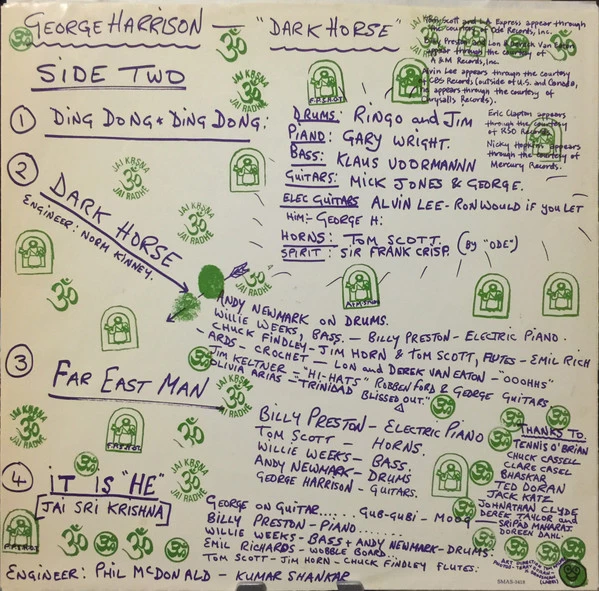 GEORGE HARRISON — "DARK HORSE"
Tom Scott and L.A. Express appear through
the courtesy of Ode Records, Inc.
Billy Preston and Lon & Derrick Van Eaton
appear through the courtesy of
A & M Records, Inc.
Alvin Lee appears through the courtesy
of CBS Records (outside of U.S. and Canada,
he appears through the courtesy of
Chrysalis Records).
Eric Clapton appears
through the courtesy
of RSO Records.
Nicky Hopkins appears
through the courtesy of
Mercury Records.
SIDE TWO
1 DING DONG * DING DONG:
DRUMS: RINGO and JIM
PIANO: GARY WRIGHT.
BASS: KLAUS VOORMANNN
GUITARS: MICK JONES & GEORGE.
ELEC GUITARS ALVIN LEE - RON WOULD IF YOU LET
HIM:- GEORGE H:
HORNS: TOM SCOTT. (BY "ODE")
SPIRIT: SIR FRANK CRISP.
2 DARK HORSE
ENGINEER: NORM KINNEY.
ANDY NEWMARK ON DRUMS.
WILLIE WEEKS, BASS. — BILLY PRESTON - ELECTRIC PIANO.
CHUCK FINDLEY - JIM HORN & TOM SCOTT, FLUTES - EMIL RICH
-ARDS - CROCHET — LON and DEREK VAN EATON - "OOOHHS"
JIM KELTNER = "HI-HATS" ROBBEN FORD & GEORGE GUITARS
OLIVIA ARIAS - "TRINIDAD BLISSED OUT."
3 FAR EAST MAN
BILLY PRESTON - ELECTRIC PIANO
TOM SCOTT — HORNS.
WILLIE WEEKS - BASS.
ANDY NEWMARK - DRUMS
GEORGE HARRISON - GUITARS.
4 IT IS "HE"
JAI SRI KRISHNA
GEORGE ON GUITAR..... GUB-GUBI - MOOG
BILLY PRESTON - PIANO........
WILLIE WEEKS - BASS + ANDY NEWMARK - DRUMS.
EMIL RICHARDS - WOBBLE BOARD.
TOM SCOTT - JIM HORN - CHUCK FINDLEY FLUTES:
ENGINEER: PHIL McDONALD - KUMAR SHANKAR
THANKS TO.
TENNIS O'BRIAN
CHUCK CASSELL
CLARE CASEL
BHASKAR
TED DORAN
JACK KATZ
JOHNATHAN CLYDE
DEREK TAYLOR and
SRIPAD MAHARAJ.
DOREEN DAHL
JAI KRSNA
JAI RADHE
ॐ
SMAS-3418